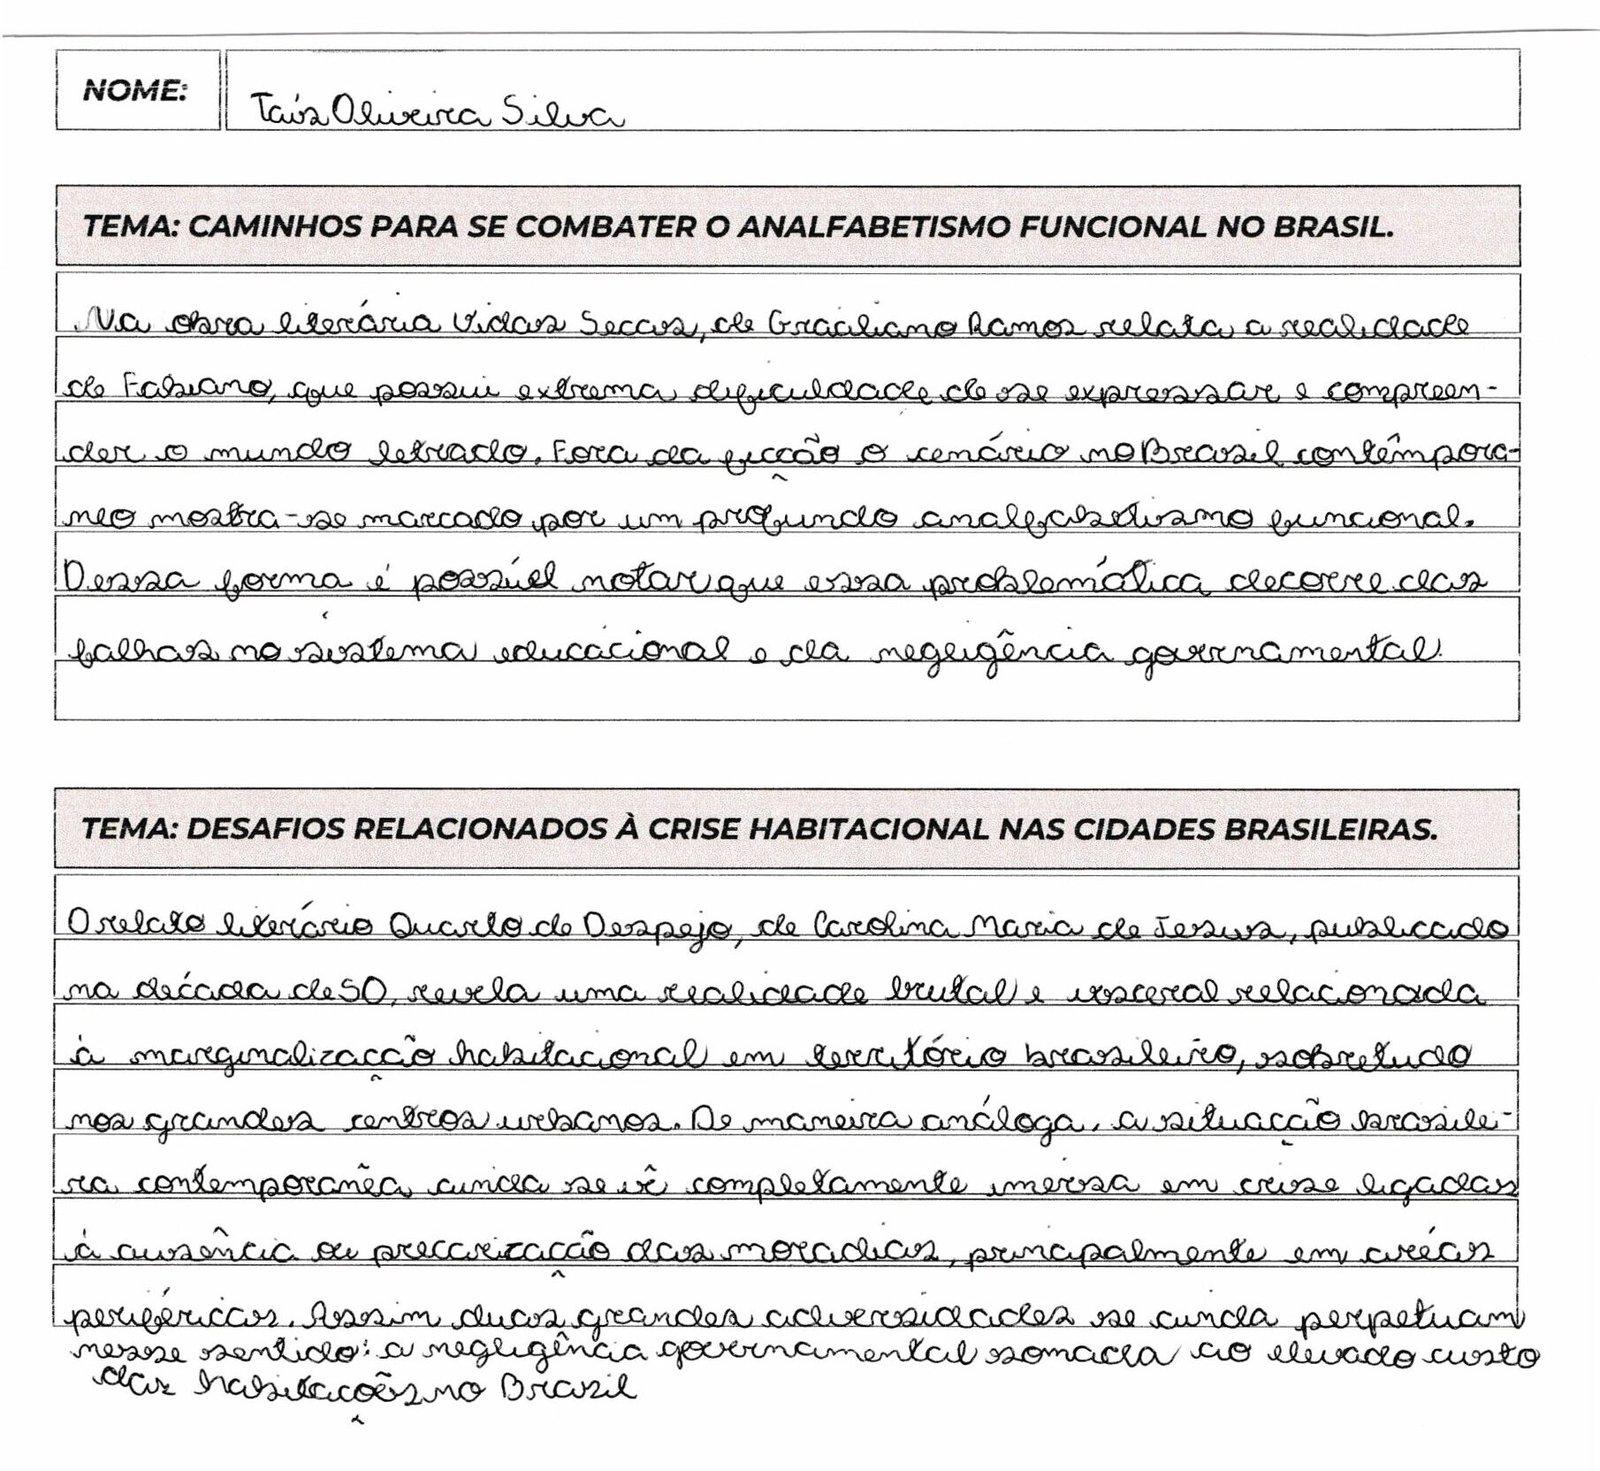 NOME: Taís Oliveira Silva
TEMA: CAMINHOS PARA SE COMBATER O ANALFABETISMO FUNCIONAL NO BRASIL.
Na obra literária Vidas Seccas, de Graciliano Ramos relata a realidade
de Fabiano, que possui extrema dificuldade de se expressar e compreen-
der o mundo letrado. Fora da ficção o cenário no Brasil contêmporâ-
neo mostra-se marcado por um profundo analfabetismo funcional.
Dessa forma é possível notar que essa problemática decorre das
falhas no sistema educacional e da negligência governamental.
TEMA: DESAFIOS RELACIONADOS À CRISE HABITACIONAL NAS CIDADES BRASILEIRAS.
O relato literário Quarto de Despejo, de Carolina Maria de Jesus, publicado
na década de 50, revela uma realidade brutal e visceral relacionada
à marginalização habitacional em território brasileiro, sobretudo
nos grandes centros urbanos. De maneira análoga, a situação brasilei-
ra contemporanêa ainda se vê completamente imersa em crise ligadas
à ausência ou precarização das moradias, principalmente em areás
periféricas. Assim duas grandes adversidades se ainda perpetuam
nesse sentido: a negligência governamental somada ao elevado custo
das habitações no Brasil